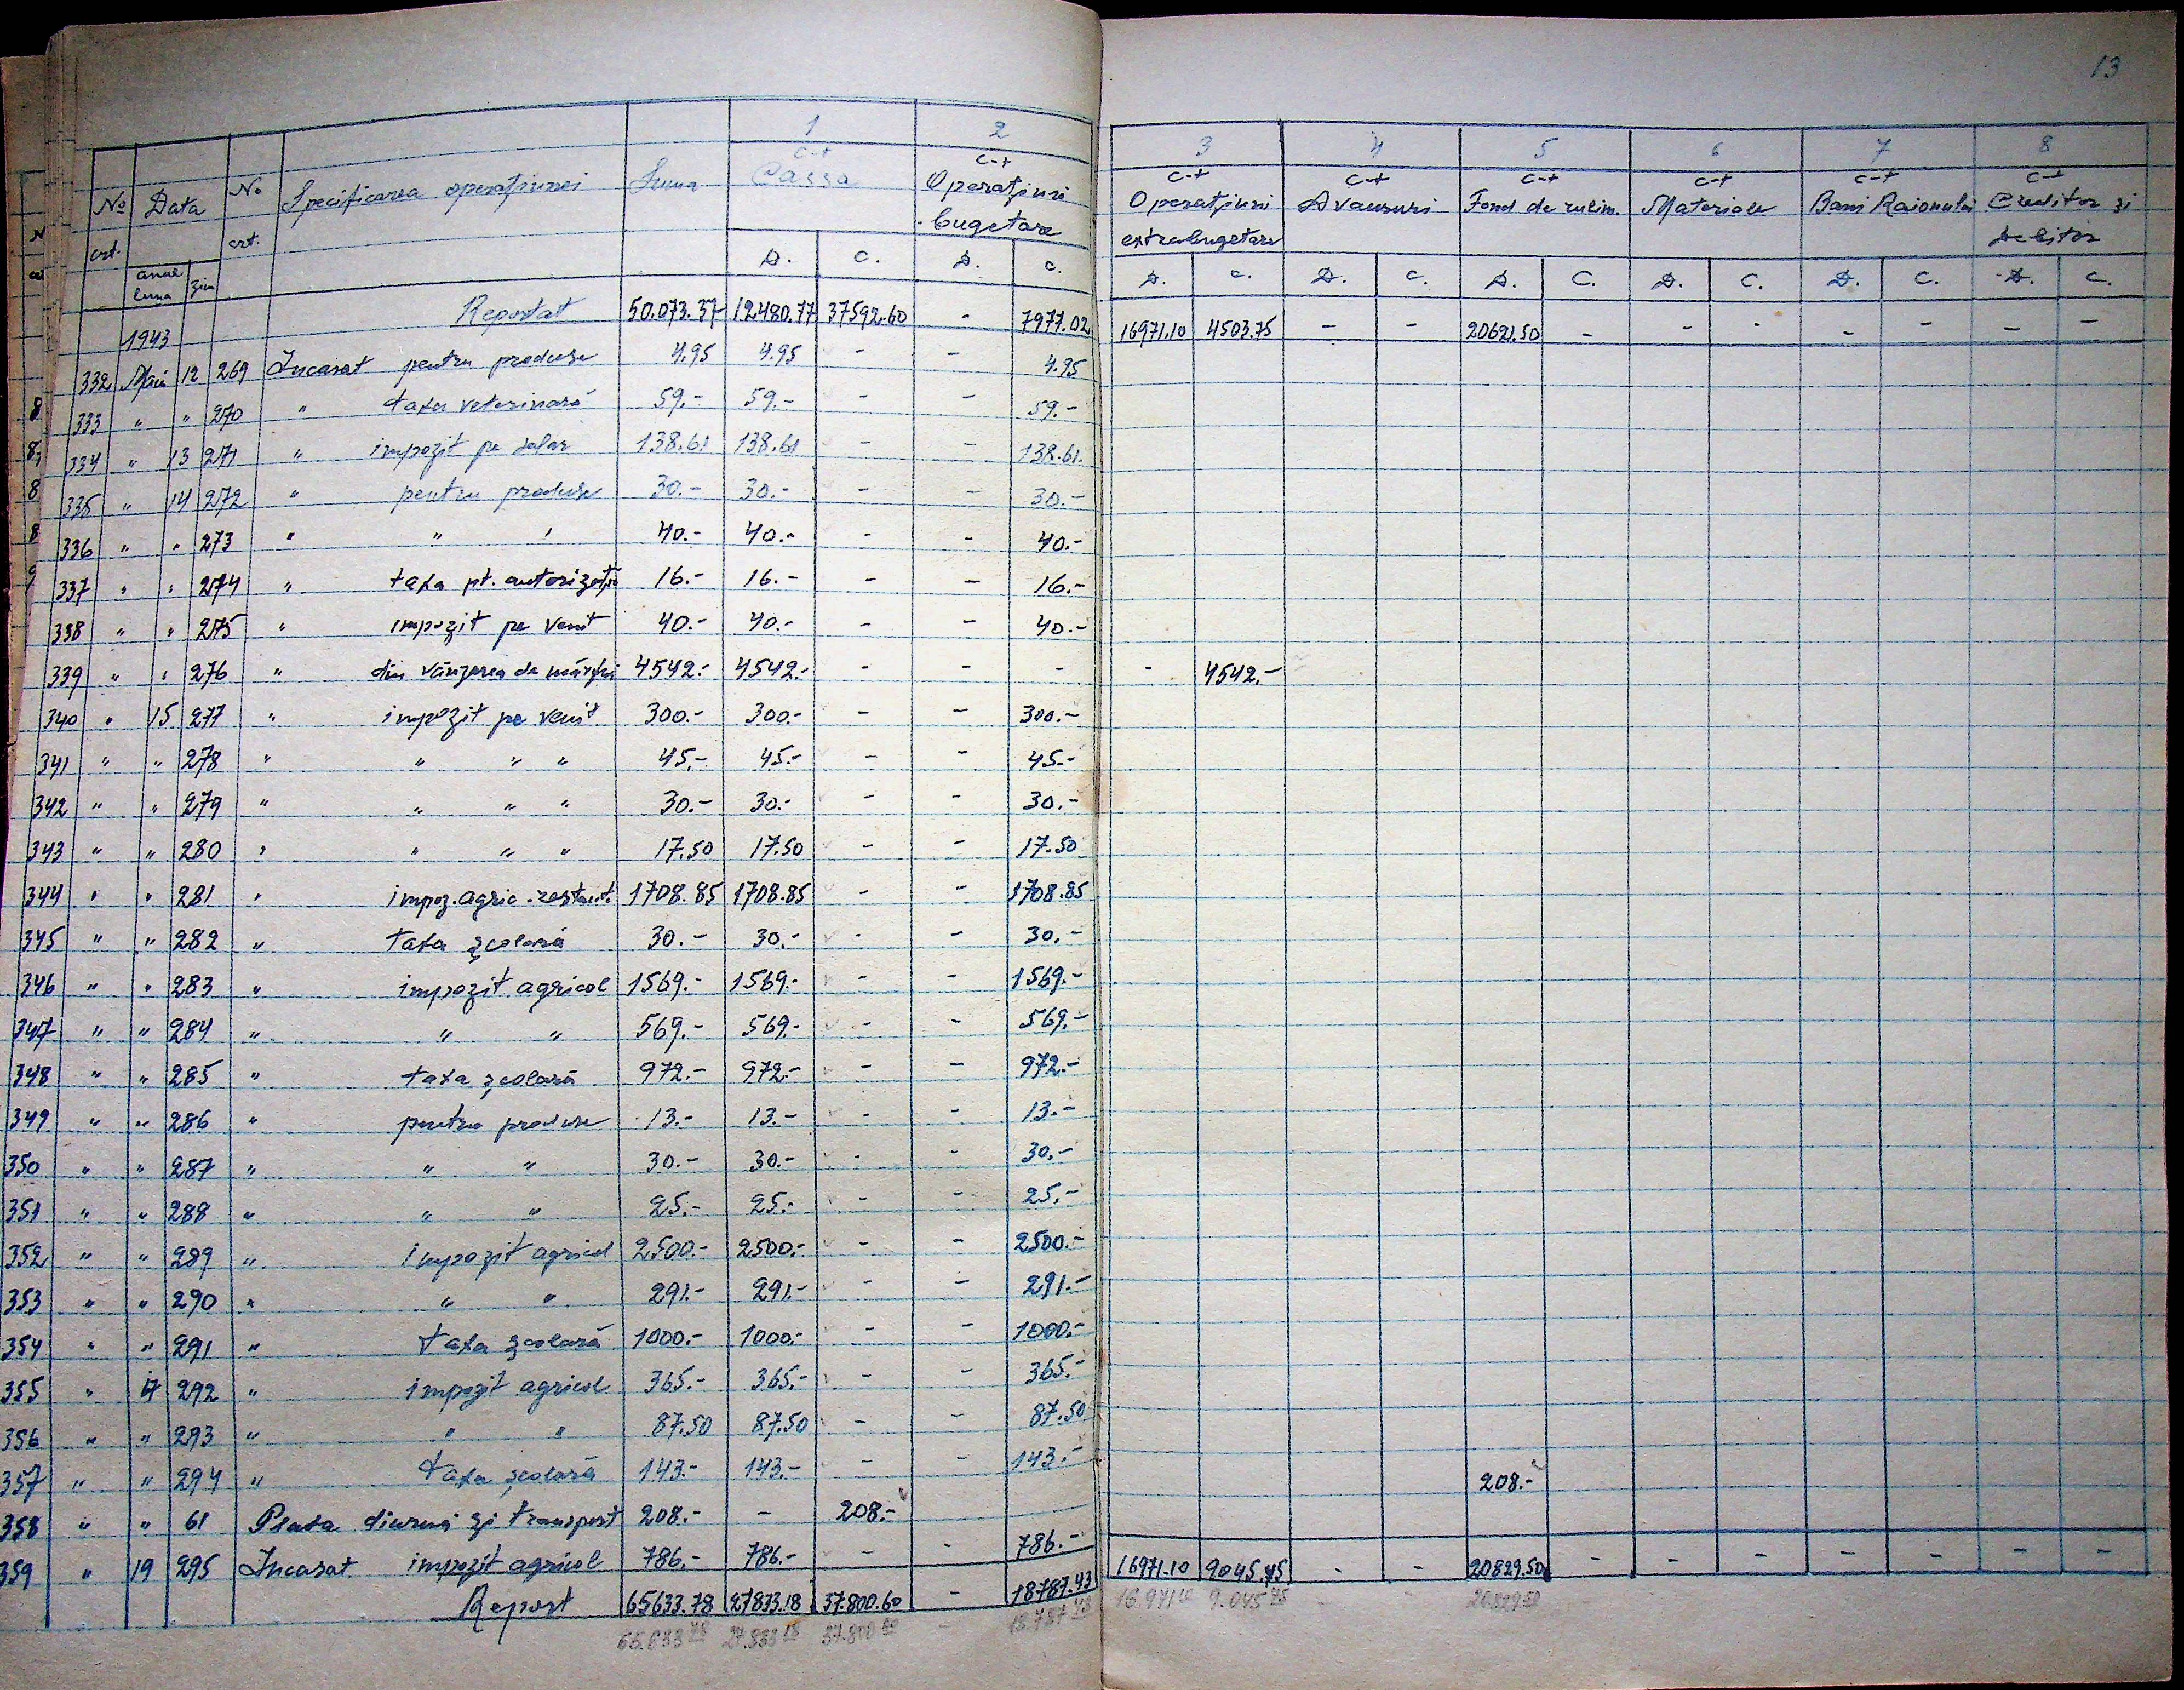 13
1 2 3 4 5 6 7 8
No crt. Data anul luna ziua No crt. Specificarea operațiunei Suma c-t Cassa c-t Operațiuni bugetare c-t Operațiuni extrabugetare c-t Avansuri c-t Fond de rulm. c-t Materiale c-t Bani Raionului c-t Creditor și Debitor
D. C. D. C. D. C. D. C. D. C. D. C. D. C. D. C.
1943 Reportat 50.073.37 12.480.77 37592.60 - 7977.02 16971.10 4503.75 - - 20621.50 - - - - - - -
332 Mai 12 269 Incasat pentru produse 4.95 4.95 - - 4.95
333 " " 270 " taxa veterinară 59.- 59.- - - 59.-
334 " 13 271 " impozit pe salar 138.61 138.61 - - 138.61.
335 " 14 272 " pentru produse 30.- 30.- - - 30.-
336 " " 273 " " " 40.- 40.- - - 40.-
337 " " 274 " taxa pt. autorizație 16.- 16.- - - 16.-
338 " " 275 " impozit pe venit 40.- 40.- - - 40.-
339 " " 276 " din vânzarea de mărfuri 4542.- 4542.- - - - - 4542.-
340 " 15 277 " impozit pe venit 300.- 300.- - - 300.-
341 " " 278 " " " " 45.- 45.- - - 45.-
342 " " 279 " " " " 30.- 30.- - - 30.-
343 " " 280 " " " " 17.50 17.50 - - 17.50
344 " " 281 " impoz. agric. restant. 1708.85 1708.85 - - 1708.85
345 " " 282 " taxa școlară 30.- 30.- - - 30.-
346 " " 283 " impozit agricol 1569.- 1569.- - - 1569.-
347 " " 284 " " " 569.- 569.- - - 569.-
348 " " 285 " taxa școlară 972.- 972.- - - 972.-
349 " " 286 " pentru produse 13.- 13.- - - 13.-
350 " " 287 " " " 30.- 30.- - - 30.-
351 " " 288 " " " 25.- 25.- - - 25.-
352 " " 289 " impozit agricol 2500.- 2500.- - - 2500.-
353 " " 290 " " " 291.- 291.- - - 291.-
354 " " 291 " taxa școlară 1000.- 1000.- - - 1000.-
355 " 17 292 " impozit agricol 365.- 365.- - - 365.-
356 " " 293 " " " 87.50 87.50 - - 87.50
357 " " 294 " taxa școlară 143.- 143.- - - 143.-
358 " " 61 Plata diurnă și transport 208.- - 208.- 208.-
359 " 19 295 Incasat impozit agricol 786.- 786.- - - 786.-
Report 65633.78 27833.18 37.800.60 - 18787.43 16971.10 9045.75 - - 20829.50 - - - - - - -
65.633 78 27.833 18 37.800 60 - 18.787 43 16.971 10 9.045 75 - - 20.829 50